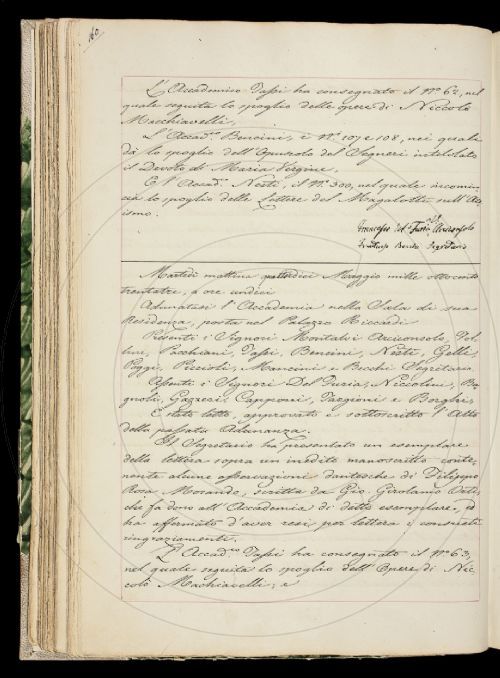 160
L'Accademico Tassi ha consegnato il N.º 62, nel
quale seguita lo spoglio delle opere di Niccolò
Macchiavelli;
L'Accad.co Bencini, i N.i 107 e 108, nei quali
dà lo spoglio dell'Opuscolo del Segneri intitolato
il Devoto di Maria Vergine.
E l'Accad. Nesti, il N.º 300, nel quale incomin
cia lo spoglio delle Lettere del Magalotti sull'Ate
ismo.
Francesco Del Furia Arciconsolo
Fruttuoso Becchi Segretario
Martedì mattina quattordici Maggio mille ottocento
trentatre, a ore undici
Adunatasi l'Accademia nella Sala di sua
Residenza, posta nel Palazzo Riccardi
Presenti i Signori Montalvi Arciconsolo, Fol
lini, Pacchiani, Tassi, Bencini, Nesti, Gelli,
Poggi, Piccioli, Mancini e Becchi Segretario.
Assenti i Signori Del Furia, Niccolini, Ba
gnoli, Gazzeri, Capponi, Targioni e Borghi.
È stato letto, approvato e sottoscritto l'Atto
della passata Adunanza.
Il Segretario ha presentato un esemplare
della lettera sopra un inedito manoscritto conte-
nente alcune osservazioni dantesche di Filippo
Rosa Morando, scritta da Gio. Girolamo Orti,
che fa dono all'Accademia di detto esemplare, ed
ha affermato d'aver resi per lettera i consueti
ringraziamenti.
L'Accad.co Tassi ha consegnato il N.º 63,
nel quale seguita lo spoglio dell'Opere di Nic
colò Machiavelli; e